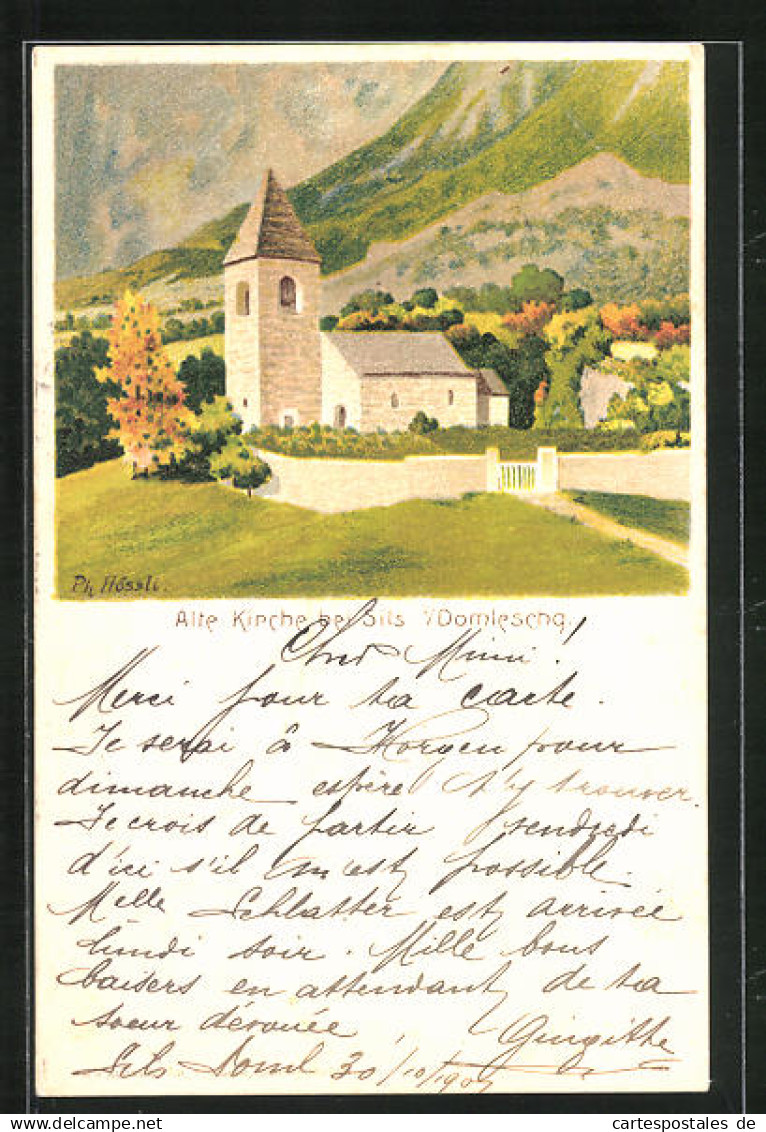 Ph. Hössli.
Alte Kirche bei Sils i/Domleschg.
Mimi!
Merci pour ta carte.
Je serai à Horgen pour
dimanche espère t'y trouver.
Je crois de partir vendredi
d'ici s'il m'est possible.
Melle Schlatter est arrivée
lundi soir. Mille bons
baisers en attendant de ta
soeur dévouée
Sils Doml 30/10/190
cartespostales de